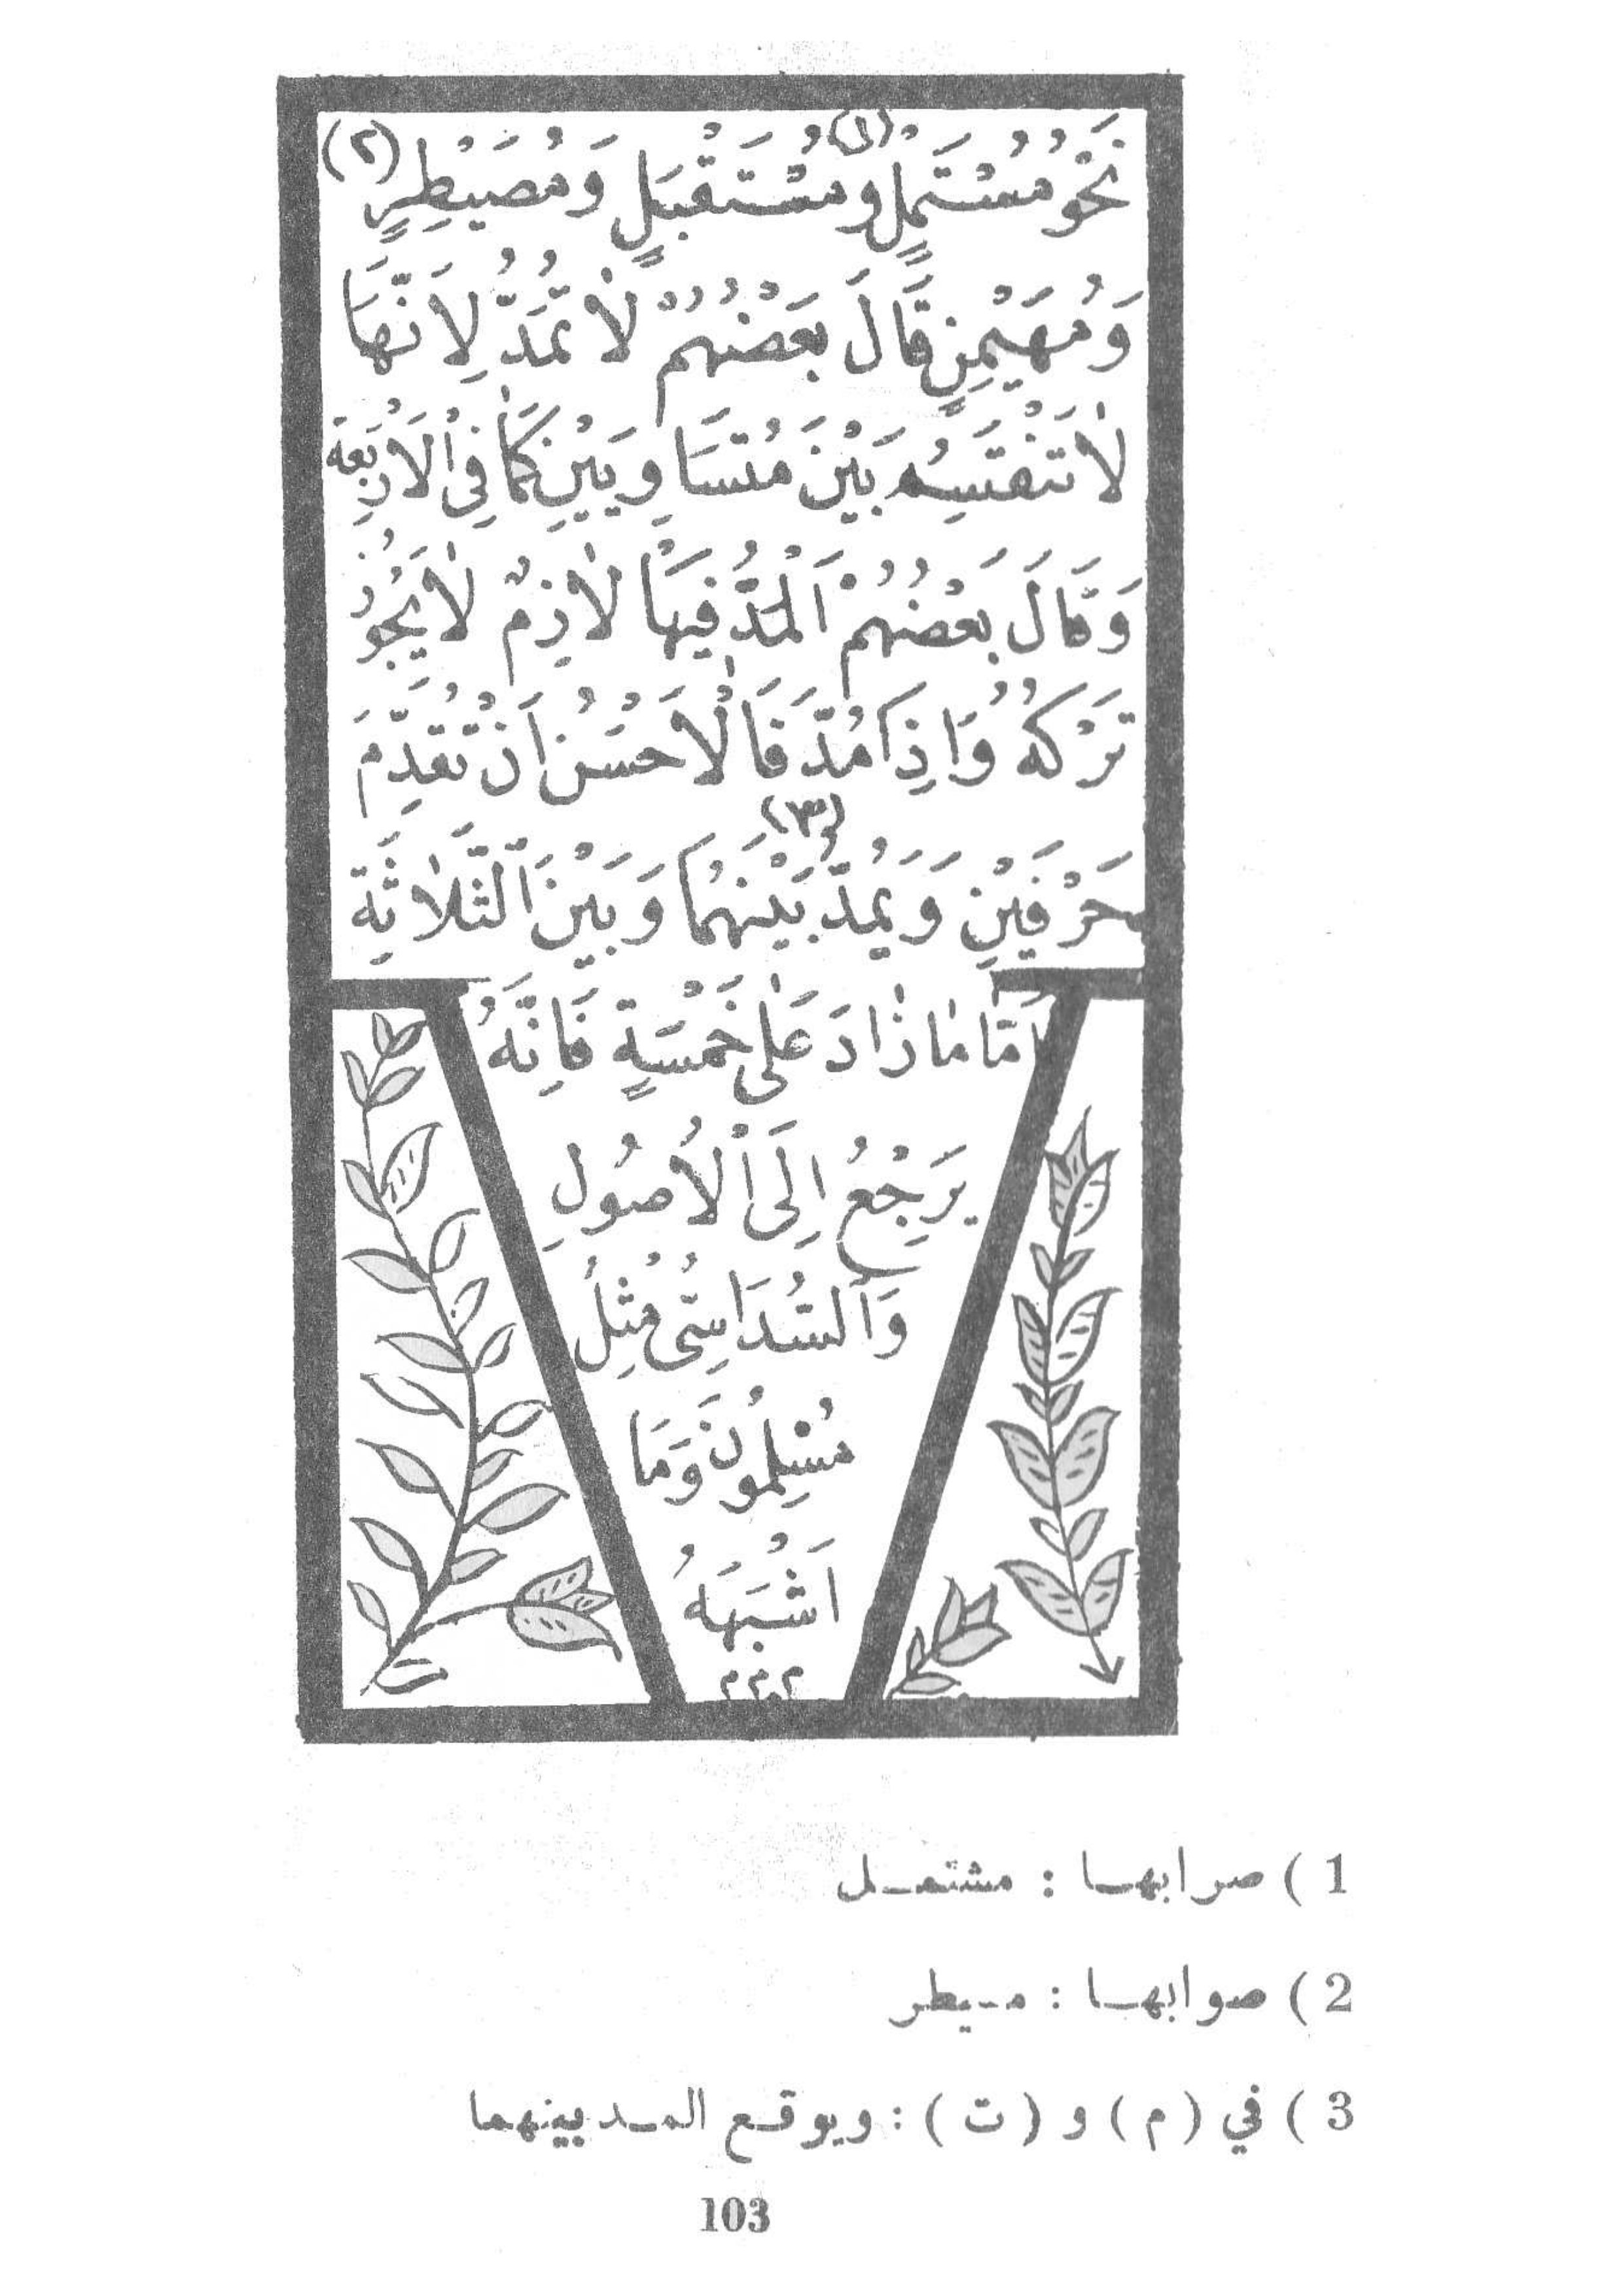 نَحْوُ مُسْتَمِلٍ (١) وَمُسْتَقْبَلٍ وَمُصَيْطِرٍ (٢)
وَمُهَيْمِنٍ قَالَ بَعْضُهُمْ لَا تُمَدُّ لِاَنَّهَا
لَا تَنْقَسِمُ بَيْنَ مُتَسَاوِيَيْنِ كَمَا فِى الْاَرْبَعَةِ
وَقَالَ بَعْضُهُمْ اَلْمَدُّ فِيهَا لَازِمٌ لَا يَجُوزُ
تَرْكُهُ وَاِذَا مُدَّ فَالْاَحْسَنُ اَنْ تُقَدِّمَ
حَرْفَيْنِ وَيُمَدَّ (٣) بَيْنَهُمَا وَبَيْنَ الثَّلَاثَةِ
اَمَّا مَا زَادَ عَلَى خَمْسَةٍ فَاِنَّهُ
يَرْجِعُ اِلَى الْاُصُولِ
وَالسُّدَاسِىُّ مِثْلُ
مُسْلِمُونَ وَمَا
اَشْبَهَهُ
1 ) صرابهـا : مشتمـل
2 ) صوابهـا : مـيطر
3 ) في ( م ) و ( ت ) : ويوقـع المـد بينهما
103